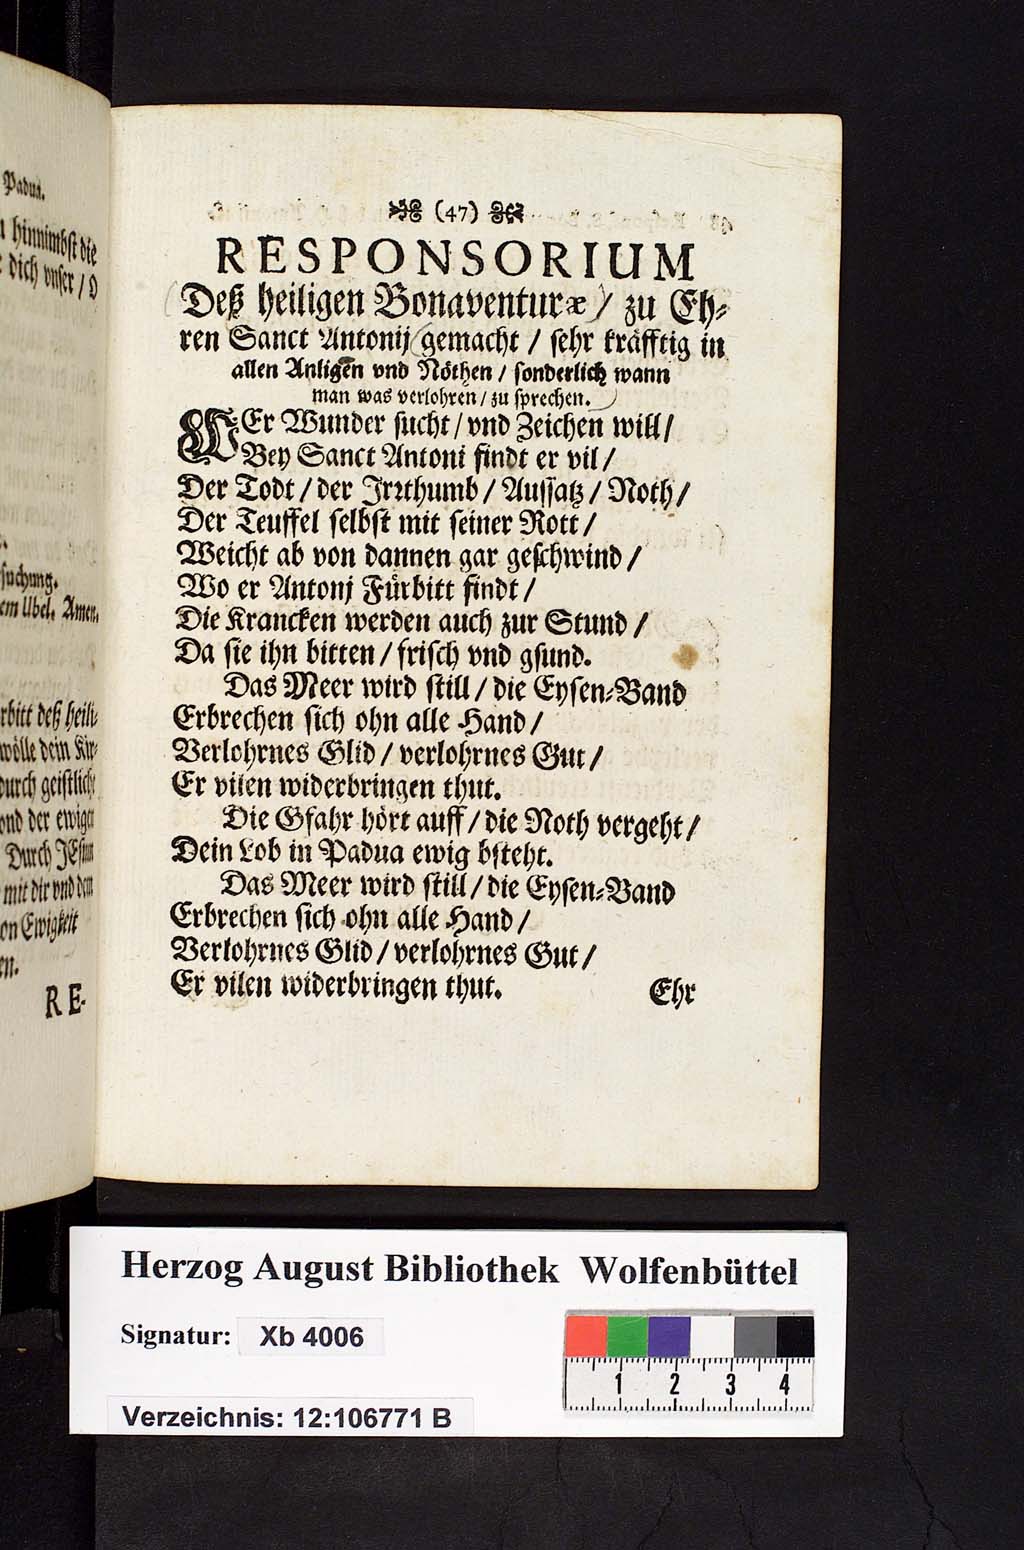 Padua.
hinnimbst die
dich vnser / O
suchung.
Ubel. Amen.
deß heili-
wölle dein Kir-
durch geistliche
vnd der ewigen
Durch JEsum
mit dir vnd dem
Ewigkeit
RE-
(47)
RESPONSORIUM
Deß heiligen Bonaventuræ / zu Eh-
ren Sanct Antonij gemacht / sehr kräfftig in
allen Anligen vnd Nöthen / sonderlich wann
man was verlohren / zu sprechen.
WEr Wunder sucht / vnd Zeichen will /
Bey Sanct Antoni findt er vil /
Der Todt / der Irrthumb / Aussatz / Noth /
Der Teuffel selbst mit seiner Rott /
Weicht ab von dannen gar geschwind /
Wo er Antonj Fürbitt findt /
Die Krancken werden auch zur Stund /
Da sie ihn bitten / frisch vnd gsund.
Das Meer wird still / die Eysen-Band
Erbrechen sich ohn alle Hand /
Verlohrnes Glid / verlohrnes Gut /
Er vilen widerbringen thut.
Die Gfahr hört auff / die Noth vergeht /
Dein Lob in Padua ewig bsteht.
Das Meer wird still / die Eysen-Band
Erbrechen sich ohn alle Hand /
Verlohrnes Glid / verlohrnes Gut /
Er vilen widerbringen thut.
Ehr
Herzog August Bibliothek Wolfenbüttel
Signatur: Xb 4006
Verzeichnis: 12:106771 B
1 2 3 4